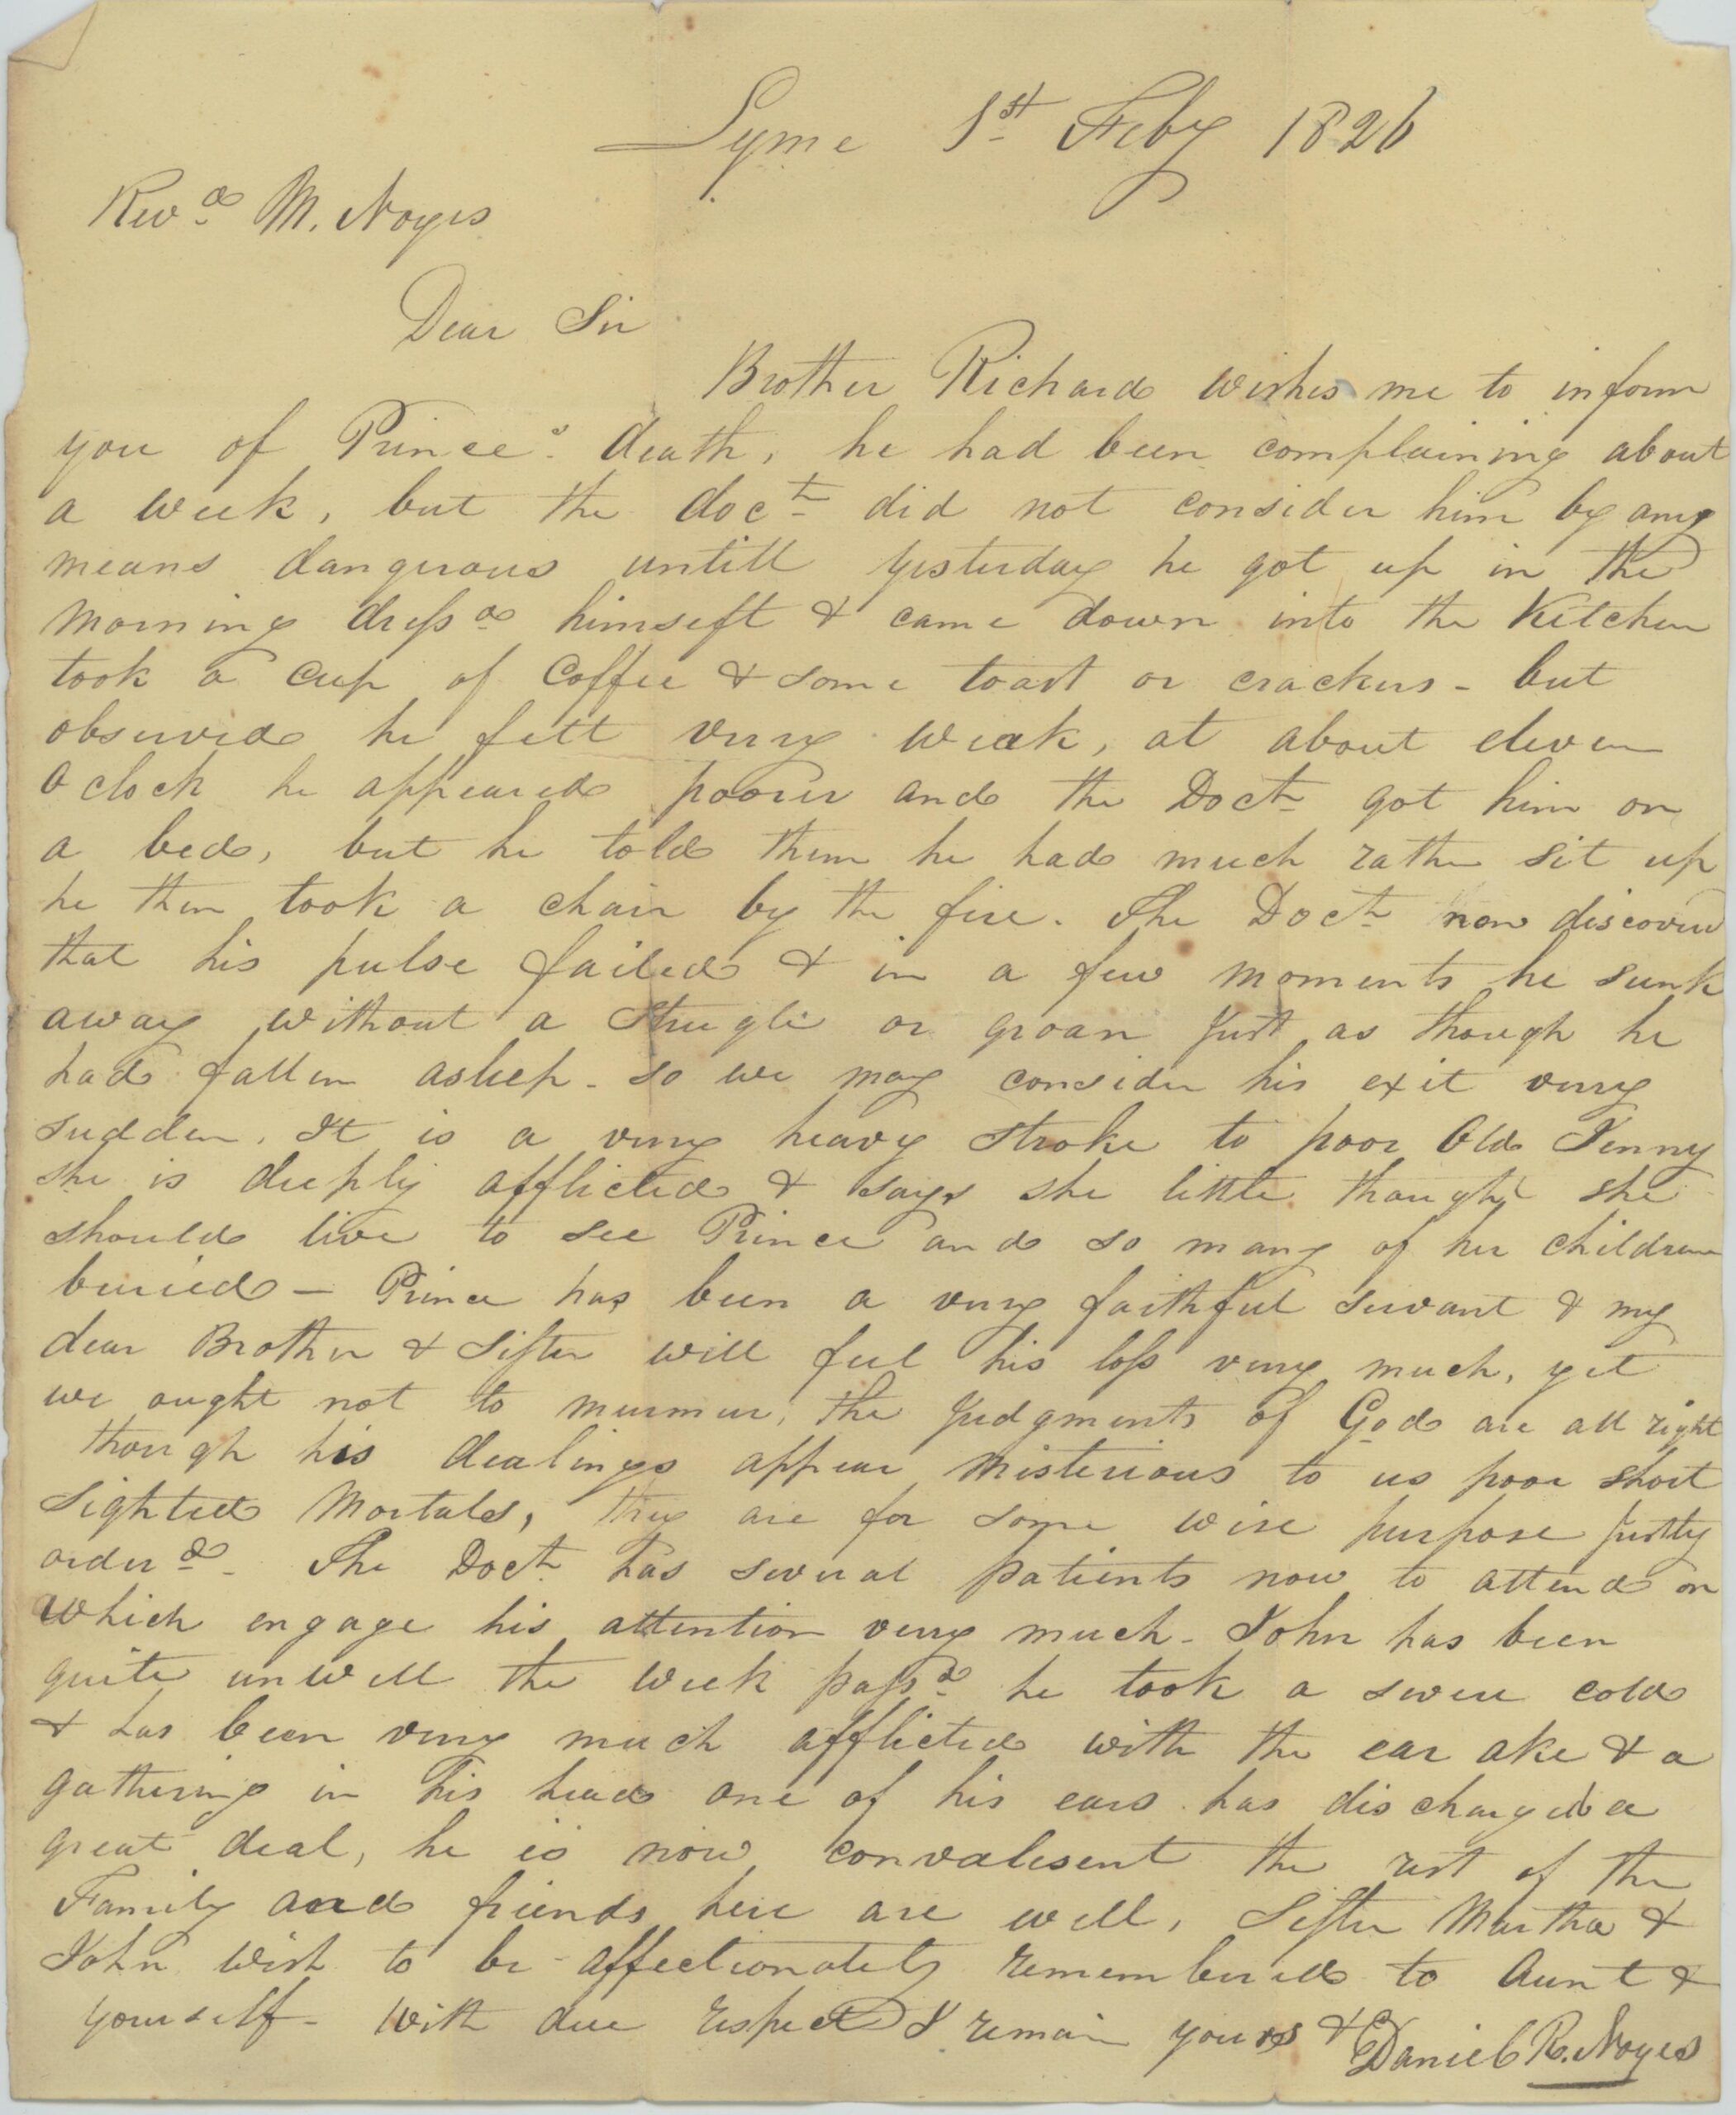 Lyme 1st Feby 1826
Revd M. Noyes
Dear Sir
Brother Richard wishes me to inform
you of Princes death, he had been complaining about
a week, but the doctr did not consider him by any
means dangerous untill yesterday he got up in the
morning dressd himself & came down into the Kitchen
took a cup of Coffee & some toast or crackers - but
observed he felt very weak, at about eleven
oclock he appeared poorer and the Doctr got him on
a bed, but he told them he had much rather sit up
he then took a chair by the fire. The Doctr now discoverd
that his pulse failed & in a few moments he sunk
away without a strugle or groan just as though he
had fallen asleep - so we may consider his exit very
sudden. It is a very heavy stroke to poor Old Jenny
she is deeply afflicted & says she little thought she
should live to see Prince and so many of her children
buried — Prince has been a very faithful servant & my
dear Brother & Sister will feel his loss very much, yet
we ought not to murmur, the judgments of God are all right
though his dealings appear misterious to us poor short
sighted mortals, they are for some wise purpose justly
orderd - The Doctr has several patients now to attend on
which engage his attention very much - John has been
quite unwell the week passd he took a severe cold
& has been very much afflicted with the ear ake & a
gathering in his head one of his ears has discharged a
great deal, he is now convalesent the rest of the
Family and friends here are well, Sister Martha &
John wish to be affectionately remembered to Aunt &
yourself - With due respect I remain yours &c
Daniel R. Noyes